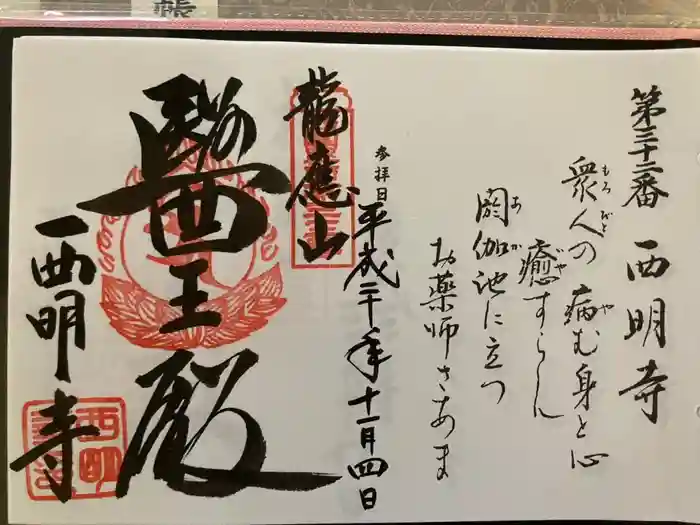 第三十二番 西明寺
衆人の 病む身と心
もろびと
や
癒すらん
閼伽池に立つ
あか
お薬師さあま
参拝日
平成二十年十一月四日
龍應山
醫王殿
西明寺
西明